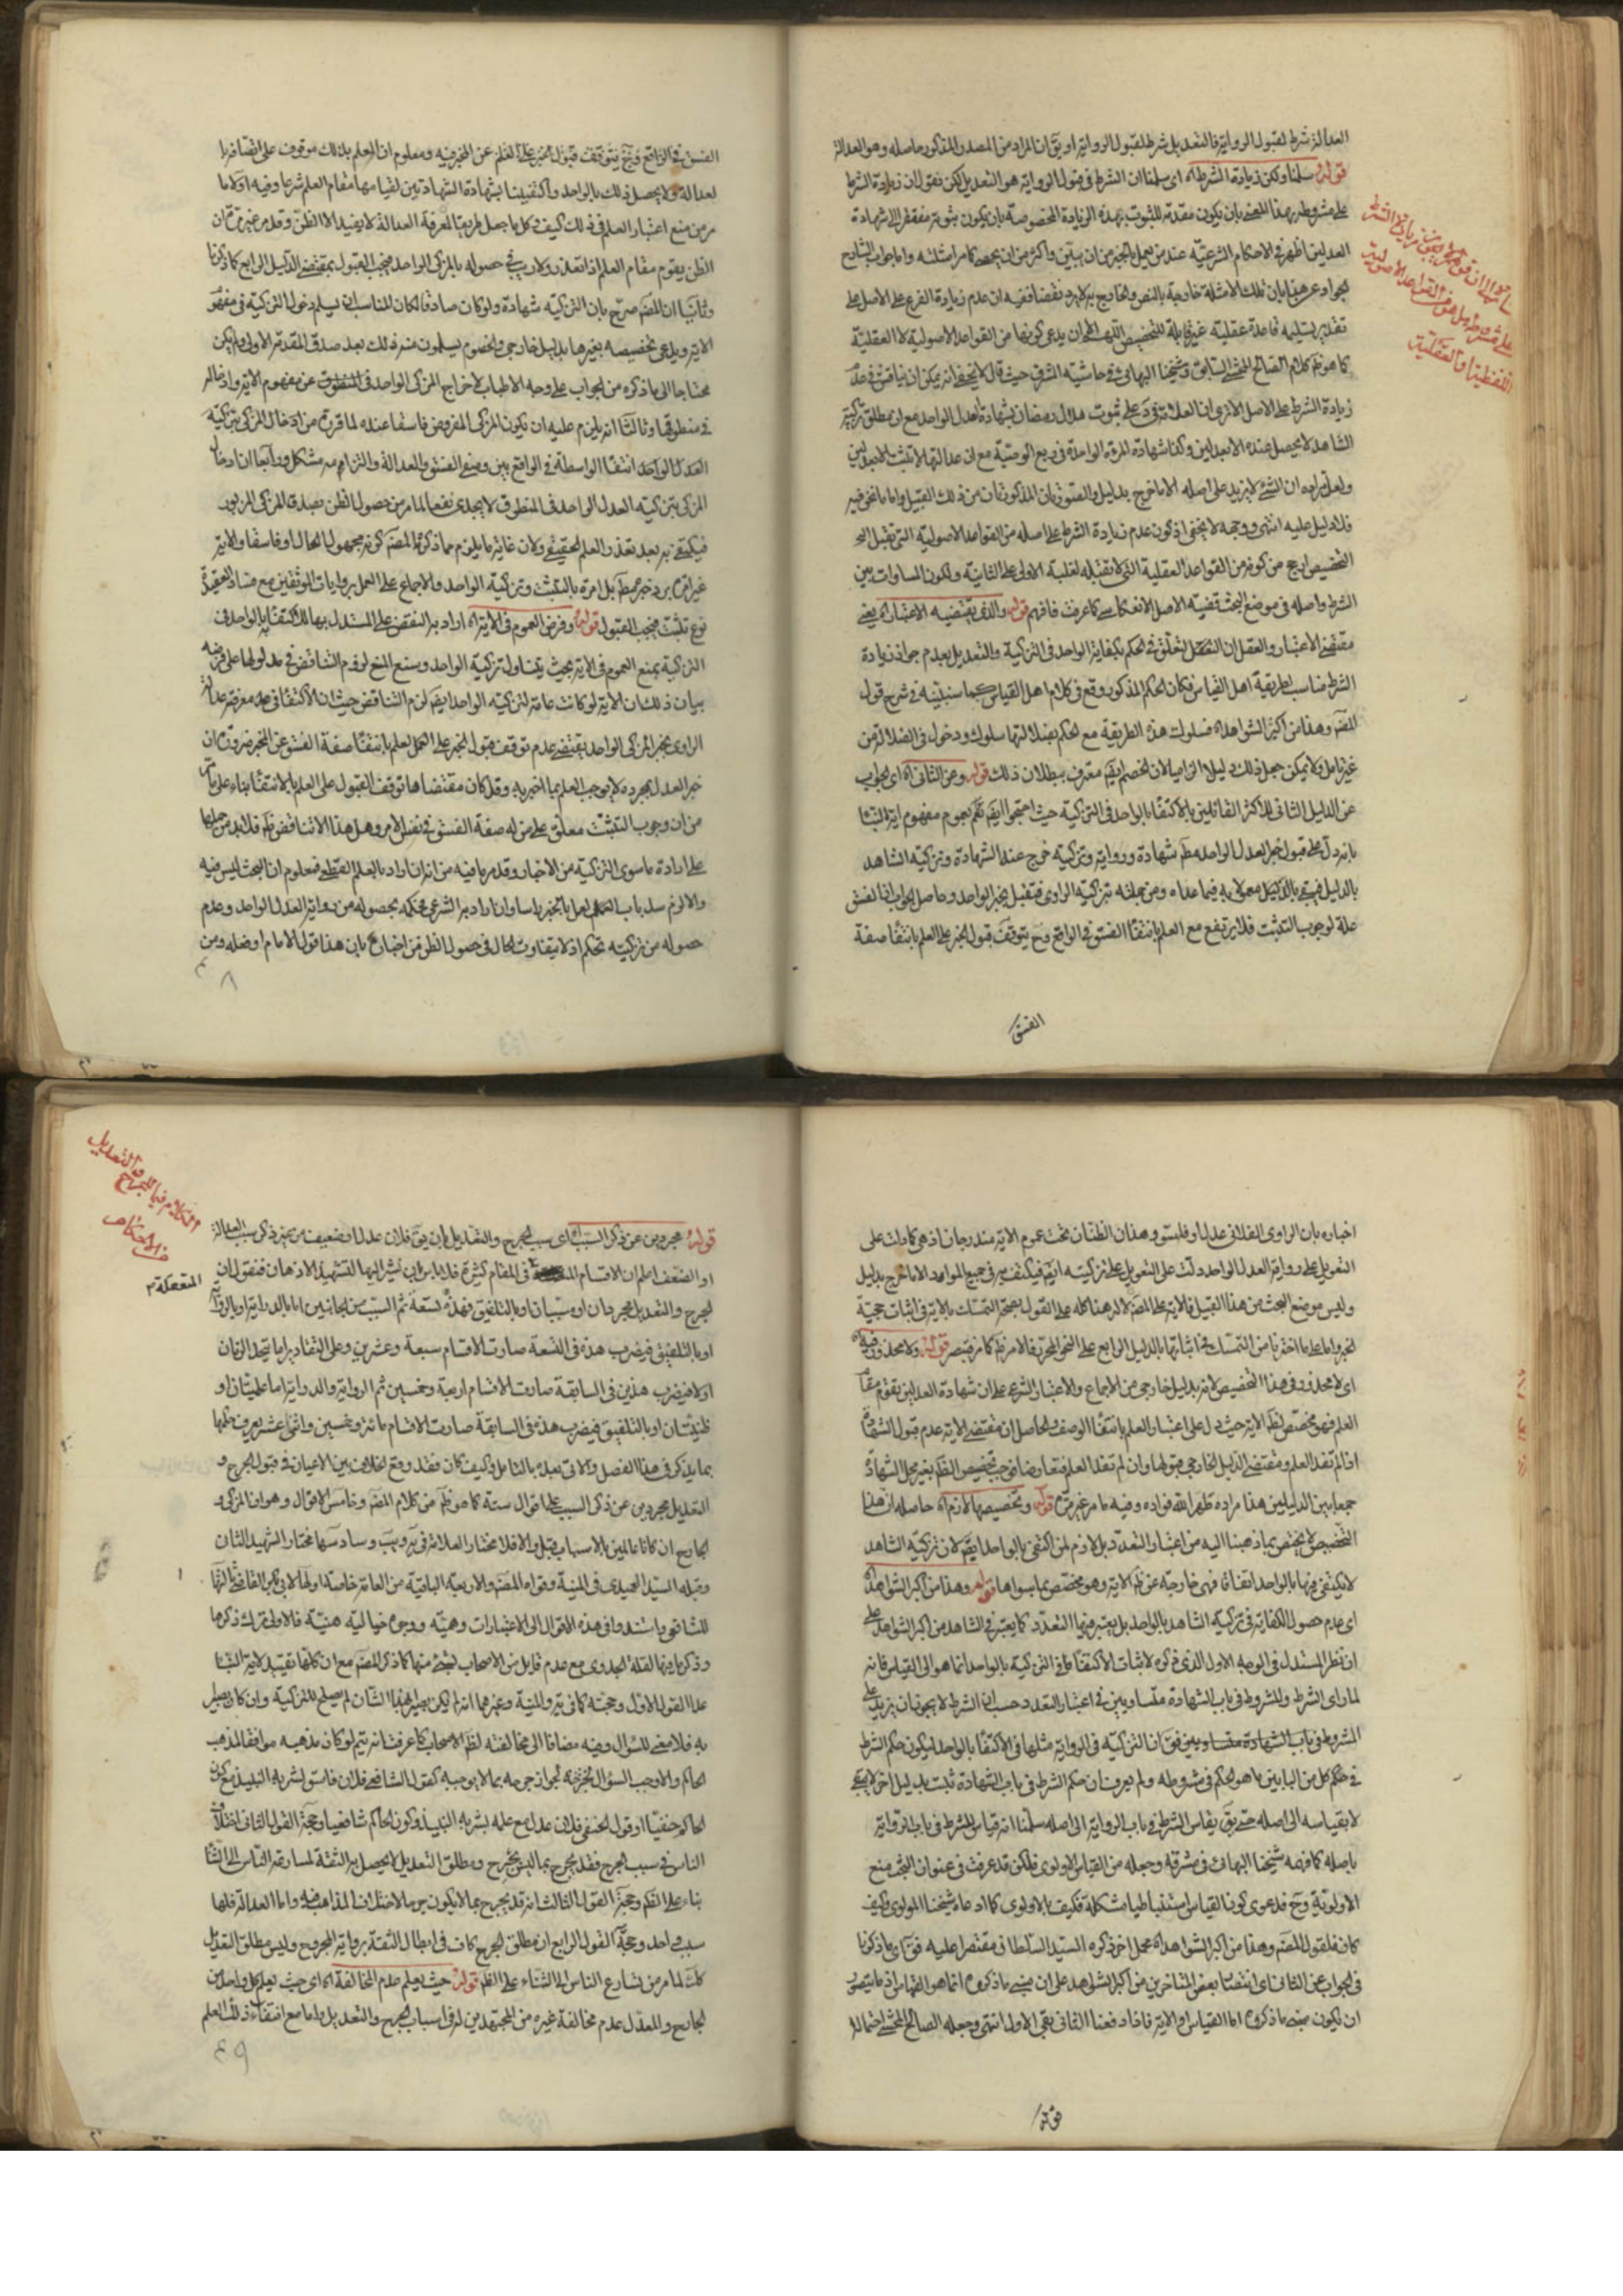 العدالة شرط لقبول الرواية فالتعديل شرط لقبول الرواية او يق ان المراد من المصدر المذكور حاصله وهو العدالة
قوله سلمنا ولكن زيادة الشرط اه اى سلمنا ان الشرط فى قبول الرواية هو التعديل لكن نقول ان زيادة الشرط
على مشروطه بهذا المعنى بان يكون مقدمة للثبوت بهذه الزيادة المخصوصة بان يكون ثبوته مفتقرا الى شهادة
العدلين اظهر فى الاحكام الشرعية عند من يعمل بالخبر من ان يبين واكثر من ان يحصى كما مر امثلته واما جواب الشارح
الجواد عن هذا بان تلك الامثلة خارجة بالنص والخارج به لا يرد نقضا ففيه ان عدم زيادة الفرع على الاصل على
تقدير تسليمه قاعدة عقلية غير قابلة للتخصيص اللهم الا ان يدعى كونها من القواعد الاصولية لا العقلية
كما هو ظ كلام الصالح المحشى السابق وشيخنا البهائى فى حاشيته الشريفة حيث قال لا يخفى انه يمكن ان يناقش فى عدم
زيادة الشرط على الاصل الا ترى ان العلامة على ثبوت هلال رمضان بشهادة العدل الواحد مع ان مطلق تزكية
الشاهد لا يحصل عنده الا بعدلين وكذا شهادة المرءة الواحدة فى ربع الوصية مع ان عدالتها لا تثبت الا بعدلين
ولعل مراده ان الشئ لا يزيد على اصله الا ما خرج بدليل والصورتان المذكورتان من ذلك القبيل واما ما نحن فيه
فلا دليل عليه انتهى ووجهه لا يخفى اذ كون عدم زيادة الشرط على اصله من القواعد الاصولية التى تقبل
التخصيص ارجح من كونه من القواعد العقلية التى لا تقبله لغلبة الاولى على الثانية ولكون المساوات بين
الشرط واصله فى موضع البحث قضية الاصل كما عرفت فافهم قوله والذى يقتضيه الاعتبار اه يعنى
مقتضى الاعتبار والعقل ان التعلق فى الحكم بكفاية الواحد فى التزكية والتعديل بعدم جواز زيادة
الشرط مناسب لطريقة اهل القياس فكان الحكم المذكور وقع فى كلام اهل القياس كما سنبينه فى شرح قول
المصـ وهذا من اكبر الشواهد اه فسلوك هذه الطريقة مع الحكم بضلالتها سلوك ودخول فى الضلالة من
غير تامل ولا يمكن جعل ذلك دليلا الزاميا لان الخصم ايضـ معترف ببطلان ذلك قوله وعن الثانى اه اى الجواب
عن الدليل الثانى للاكثر القائلين بالاكتفاء بالواحد فى التزكية حيث احتجوا ايضـ بعموم مفهوم اية التثبت
بانه دل على قبول خبر العدل الواحد مطـ شهادة ورواية وتزكية خرج عنه الشهادة وتزكية الشاهد
بالدليل فبقى معمولا به فيما عداه ومن جملته تزكية الراوى فتقبل بخبر الواحد وحاصل الجواب ان الفسق
علة لوجوب التثبت فلا يرتفع مع العلم بانتفاء الفسق فى الواقع وح يتوقف قبول الخبر على العلم بانتفاء صفة
الفسق
على مشروطه بل هو من القواعد الاصولية
اللفظية او العقلية
الفسق فى الواقع وح يتوقف قبول الخبر على العلم عن المخبر فيه ومعلوم ان العلم بذلك موقوف على اتصاف
لعدالة ولا يحصل ذلك بالواحد واكتفينا بشهادة الشهادتين لقيامها مقام العلم شرعا وفيه اولا ما
مر من منع اعتبار العلم فى ذلك كيف وكل ما جعل طريقا لمعرفة العدالة لا يفيد الا الظن وقد مر غير مرة ان
الظن يقوم مقام العلم اذا تعذر ولا ريب فى حصوله بالمزكى الواحد فيجب القبول بمقتضى الدليل الرابع كما ذكرنا
وثانيا ان المصـ صرح بان التزكية شهادة ولو كان صادقا لكان المناسب ان يسلم دخول التزكية فى مفهوم
الاية ويدعى تخصيصه بغيرها بدليل خارجى والخصوم يسلمون منه ذلك بعد صدق المقدمة الاولى ولم يكن
محتاجا الى ما ذكره من الجواب على وجه الاطناب لاخراج المزكى الواحد عن مفهوم الاية وادخاله
فى منطوقها وثالثا انه يلزم عليه ان يكون المزكى المفروض فاسقا عنده لما قرره من ادخال المزكى بتزكية
العدل الواحد انتفاء الواسطة فى الواقع بين وصفى الفسق والعدالة والتزامه مشكل ورابعا ان ادخال
المزكى بتزكية العدل الواحد فى المنطوق لا يجدى نفعا لما مر من حصول الظن بصدق المزكى المزبور
فيكتفى به بعد تعذر العلم الحقيقى ولان غاية ما يلزم مما ذكره المصـ كونه مجهول الحال او فاسقا والاية
غير امرة برد خبره مطـ بل امرة بالتثبت وتزكية الواحد والاجماع على العمل بروايات الموثقين مع فساد العقيدة
نوع تثبت فيجب القبول قوله وفرض العموم فى الاية اه اراد به النقض على المستدل بها للاكتفاء بالواحد فى
التزكية بمنع العموم فى الاية بحيث يتناول تزكية الواحد وسند المنع لزوم التناقض فى مدلولها على فرضه
بيان ذلك ان الاية لو كانت عامة لتزكية الواحد ايضـ لزم التناقض حيث ان الاكتفاء فى معرفة عدالة
الراوى بخبر المزكى الواحد يقتضى عدم توقف قبول الخبر على العلم بانتفاء صفة الفسق عن المخبر ضرورة ان
خبر العدل بمجرده لا يوجب العلم بما اخبر به وقد كان مقتضاها توقف القبول على العلم بالانتفاء بناء على ما
من ان وجوب التثبت معلق على من له صفة الفسق فى نفس الامر وهل هذا الا تناقض ظـ فلا بد من حملها
على ارادة ما سوى التزكية من الاخبار وقد مر ما فيه من انه ان اراد بالعلم القطع فمعلوم ان البحث ليس فيه
والا لزم سد باب العمل باخبارنا وان اراد به الشرعى فحكمه بحصوله من رواية العدل الواحد وعدم
حصوله من تزكيته تحكم اذ لا يتفاوت الحال فى حصول الظن من اخباره بان هذا قول الامام او فعله ومن
٤٨
اخباره بان الراوى الفلانى عدل او فاسق وهذان الظنان تحت عموم الاية مندرجان اذ هى كما دلت على
التعويل على رواية العدل الواحد دلت على التعويل على تزكيته ايضـ فيكتفى به فى جميع الموارد الا ما خرج بدليل
وليس موضع البحث من هذا القبيل فالاية على المصـ لا له هذا كله على القول بصحة التمسك بالاية فى اثبات حجية
الخبر واما على ما اخترنا من التمسك فى اثباتها بالدليل الرابع على النحو المحرر فالامر ظـ كما مر فتبصر قوله ولا محذور فيه اه
اى لا محذور فى هذا التخصيص لانه بدليل خارجى من الاجماع والاعتبار الشرعى على ان شهادة العدلين يقوم مقام
العلم فهو مخصص لظـ الاية حيث دل على اعتبار العلم بانتفاء الوصف والحاصل ان مقتضى الاية عدم قبول الشهادة
اذا لم تفد العلم ومقتضى الدليل الخارجى قبولها وان لم تفد العلم فتعارضا فوجب تخصيص الظـ بغير محل الشهادة
جمعا بين الدليلين هذا مراده طهر الله فؤاده وفيه ما مر غير مرة قوله وتخصيصها لازم اه حاصله ان هذا
التخصيص لا يختص بما ذهبنا اليه من اعتبار التعدد بل لازم لمن اكتفى بالواحد ايضـ لان تزكية الشاهد
لا يكتفى فيها بالواحد اتفاقا فهى خارجة عن ظـ الاية وهو مخصص بما سواها قوله وهذا من اكبر الشواهد اه
اى عدم حصول الكفاية فى تزكية الشاهد بالواحد بل يعتبر فيها التعدد كما يعتبر فى الشاهد من اكبر الشواهد على
ان نظر المستدل فى الوجه الاول الذى ذكره لاثبات الاكتفاء فى التزكية بالواحد انما هو الى القياس فانه
لما راى الشرط والمشروط فى باب الشهادة متساويين فى اعتبار التعدد حسب ان الشرط لا يجوز ان يزيد على
المشروط فى باب الشهادة ان التزكية فى الرواية مثلها فى الاكتفاء بالواحد ليكون حكم الشرط
فى حكم كل من البابين ما هو الحكم فى مشروطه ولم يعرف ان حكم الشرط فى باب الشهادة ثبت بدليل اخر
لا بقياسه الى اصله حتى يق يقاس الشرط فى باب الرواية الى اصله سلمنا انه قياس الشرط فى باب الرواية
باصله كما فهمه شيخنا البهائى فى مشرقه وجعله من القياس الاولوى ولكن قد عرفت فى عنوان البحث منع
الاولوية وح فدعوى كون القياس استنباطيا مشكلة فكيف بالاولوى كما ادعاه شيخنا المولوى وكيف
كان فلقول المصـ وهذا من اكبر الشواهد اه محمل اخر ذكره السيد السلطان مقتصرا عليه فق اى ما ذكرنا
فى الجواب عن الثانى اى انتصار بعض المتاخرين من اكبر الشواهد على ان مبنى ما ذكروه انما هو القياس اذ ما يتصور
ان يكون مبنى ما ذكروه اما القياس او الاية فاذا دفعنا الثانى بقى الاول انتهى وجعله الصالح المحشى احتمالا
قوله
الكلام فيما للجرح والتعديل
من الاحكام
قوله مجردين عن ذكر السبب اه اى سبب الجرح والتعديل بان يق فلان عدل او ضعيف من غير ذكر سبب العدالة
او الضعف اعلم ان الاقسام فى المقام كثيرة فلا باس بان نشير اليها لتشحيذ الاذهان فنقول ان
المتعقلة
الجرح والتعديل مجردان او مسببان او بالتلفيق فهذه تسعة ثم السبب من الجانبين اما بالدراية او بالرواية
او بالتلفيق فيضرب هذه فى التسعة صارت الاقسام سبعة وعشرين وعلى التقادير اما يتحد الزمان
او لا فيضرب هذين فى السابقة صارت الاقسام اربعة وخمسين ثم الرواية والدراية اما علميتان او
ظنيتان او بالتلفيق فيضرب هذه فى السابقة صارت الاقسام مائة وخمسين واثنى عشر يعرف حكمها
بما يذكر فى هذا الفصل والاتى بعده بالتامل وكيف كان فقد وقع الخلاف بين الاعيان فى قبول الجرح و
التعديل مجردين عن ذكر السبب على اقوال ستة كما هو ظـ من كلام المصـ وخامس الاقوال وهو ان المزكى و
الجارح ان كانا عالمين بالاسباب قبل والا فلا مختار العلامة فى يه ويب وسادسها مختار الشهيد الثانى
وقبله السيد العميدى فى المنية وقواه المصـ والاربعة الباقية من العامة خاصة اولها لابى بكر القاضى ثالثها
للشافعى واستندوا فى هذه الاقوال الى الاعتبارات وهمية ووجوه خيالية هنية فالاولى ترك ذكرها
وذكر ما فيها لقلة الجدوى مع عدم قابل من الاصحاب لشئ منها كما ذكر المصـ مع ان كلها تقييد لاية التثبت
عدا القول الاول وحجته كما فى يه والمنية وغيرهما انه ان لم يكن بصيرا بهذا الشان لم يصلح للتزكية وان كان بصيرا
به فلا معنى للسؤال وفيه مضافا الى مخالفته لظـ الاصحاب كما عرفت انه يتم لو كان مذهبه موافقا لمذهب
الحاكم والا وجب السؤال لجواز جرحه بما لا يوجبه كقول الشافعى فلان فاسق لشربه النبيذ مع كون
الحاكم حنفيا او قول الحنفى فلان عدل مع علمه بشربه النبيذ وكون الحاكم شافعيا وحجة القول الثانى اختلاف
الناس فى سبب الجرح فقد يجرح بما ليس بجرح ومطلق التعديل لا يحصل به الثقة لمسارعة الناس الى الثناء
بناء على الظـ وحجة القول الثالث انه قد يجرح بما لا يكون جرحا لاختلاف المذاهب فيه واما العدالة فلها
سبب واحد وحجة القول الرابع ان مطلق الجرح كاف فى ابطال الثقة برواية المجروح وليس مطلق التعديل
كك لما مر من تسارع الناس الى الثناء على الظـ قوله حيث يعلم عدم المخالفة اه اى حيث يعلم كل واحد من
الجارح والمعدل عدم مخالفة غيره من المجتهدين له فى اسباب الجرح والتعديل واما مع انتفاء ذلك العلم
٤٩